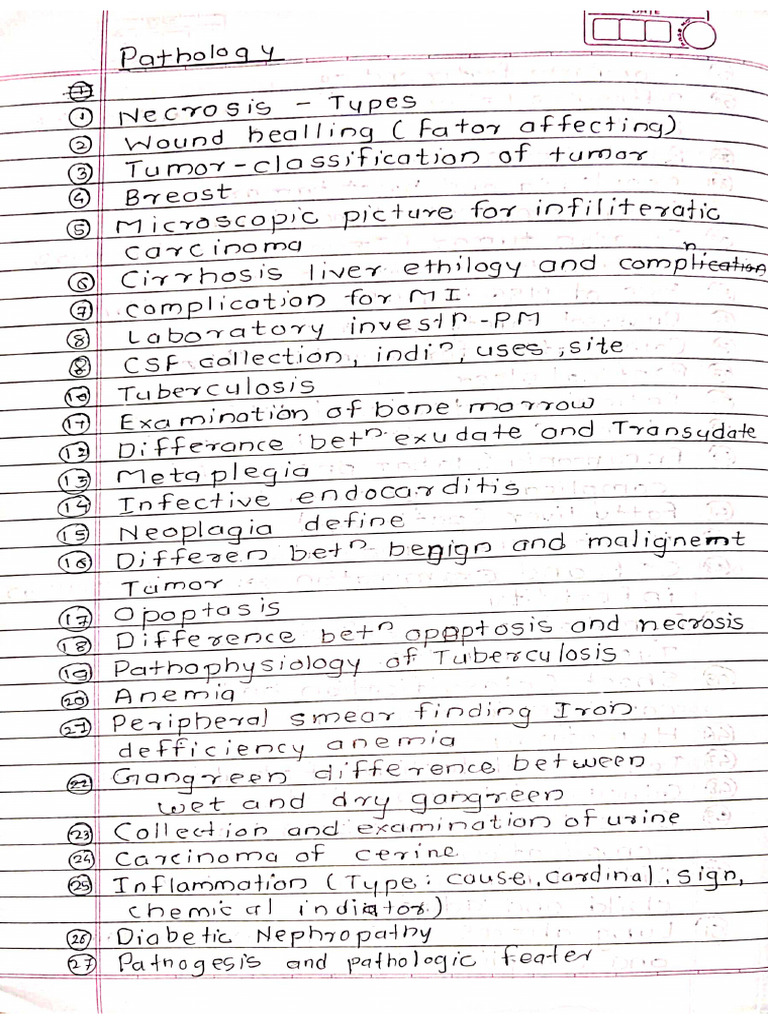 DATE
Pathology
① Necrosis - Types
② Wound healling (Fator affecting)
③ Tumor-classification of tumor
④ Breast
⑤ Microscopic picture for infiliteratic
carcinoma
⑥ Cirrhosis liver ethilogy and compn
⑦ complication for MI.
⑧ Laboratory investn -PM
⑧ CSF collection, indin, uses, site
⑩ Tuberculosis
⑪ Examination of bone marrow
⑫ Differance betn exudate and Transydate
⑬ Metaplegia
⑭ Infective endocarditis
⑮ Neoplagia define
⑯ Differen betn benign and malignemt
Tumor
⑰ Opoptasis
⑱ Difference betn apoptosis and necrosis
⑲ Pathophysiology of Tuberculosis
⑳ Anemia
㉑ Peripheral smear finding Iron
defficiency anemia
㉒ Gangreen difference between
wet and dry gangreen
㉓ Collection and examination of urine
㉔ Carcinoma of cerine
㉕ Inflammation (Type: cause, cardinal, sign,
chemical indiator)
㉖ Diabetic Nephropathy
㉗ Patnogesis and pathologic feater